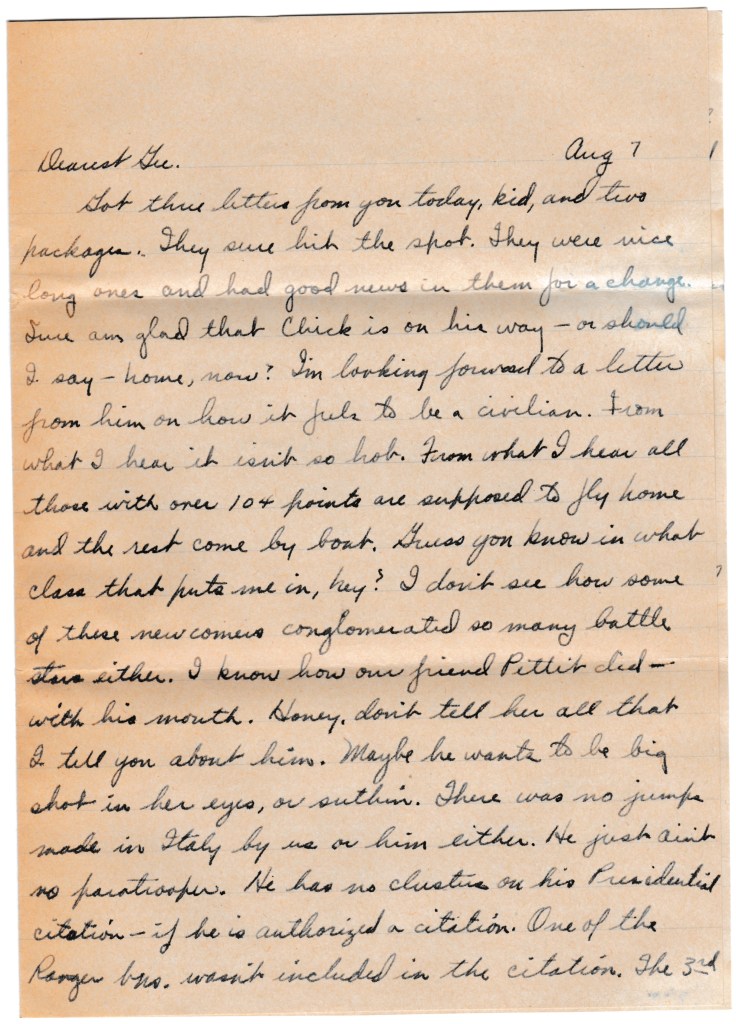 Aug 7
Dearest Gee.
Got three letters from you today, kid, and two
packages. They sure hit the spot. They were nice
long ones and had good news in them for a change.
Sure am glad that Chick is on his way – or should
I say – home, now? I'm looking forward to a letter
from him on how it feels to be a civilian. From
what I hear it isn't so hot. From what I hear all
those with over 104 points are supposed to fly home
and the rest come by boat. Guess you know in what
class that puts me in, hey? I don't see how some
of these newcomers conglomerated so many battle
stars either. I know how our friend Pettit did –
with his mouth. Honey, don't tell her all that
I tell you about him. Maybe he wants to be big
shot in her eyes, or suthin. There was no jumps
made in Italy by us or him either. He just ain't
no paratrooper. He has no clusters on his Presidential
citation – if he is authorized a citation. One of the
Ranger bns. wasn't included in the citation. The 3rd